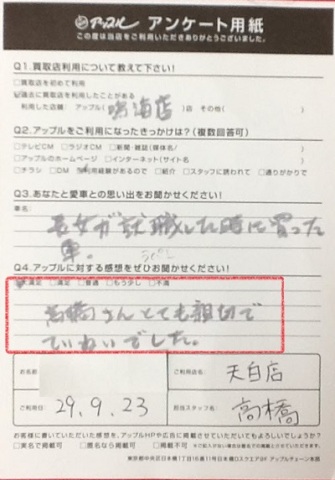 アップル アンケート用紙
この度は当店をご利用いただきありがとうございました。
Q1.買取店利用について教えて下さい!
□買取店を初めて利用
過去に買取店を利用したことがある
利用した店舗 アップル( 鳴海店 )店 その他( )
Q2.アップルをご利用になったきっかけは?(複数回答可)
□テレビCM □ラジオCM □新聞・雑誌(媒体名/ )
□アップルのホームページ □インターネット(サイト名 )
□チラシ □DM 利用経験があるので □紹介 □スタッフに誘われて □通りがかりで
Q3.あなたと愛車との思い出をお聞かせください!
車名:
長女が就職した時に買った
車。
Q4.アップルに対する感想をぜひお聞かせください!
満足 □満足 □普通 □もう少し □不満
高橋さんとても親切で
ていねいでした。
お名前
ご利用店名: 天白店
ご利用日: 29.9.23
担当スタッフ名: 高橋
お客様に書いていただいた感想を、アップルHPや広告に掲載させていただいてもよろしいでしょうか?
□実名で掲載可 □匿名なら掲載可 □掲載不可
東京都中央区日本橋1丁目16番11号日本橋Dスクエア3F アップルチェーン本部